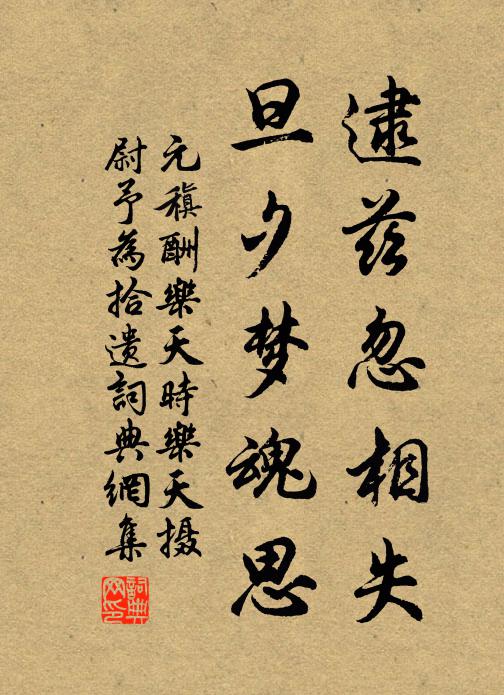 逮兹忽相失
旦夕梦魂思
元稹酬樂天時樂天摄
尉予為拾遺詞典網集
詞典
网印